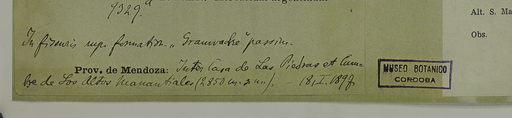 9329.a
Alt. S. Ma
Obs.
In fissuris rup. formation. „Grauwacke" passim.
Prov. de Mendoza: Inter Casa de Las Piedras et Cum-
bre de Los Altos Manantiales (2850 m. s. m.). 18.I.1897
MUSEO BOTANICO
CORDOBA